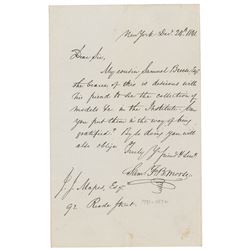 New York Dec. 24th 1841
Dear Sir,
My cousin Samuel Breese, Esq
the bearer of this is desirous with
his friend to see the collection of
models &c in the Institute. Can
you put them in the way of being
gratified? By so doing you will
also oblige
Truly Yr friend & Servt
Saml F. B. Morse
J. J. Mapes, Esqr
92 Reade Street.